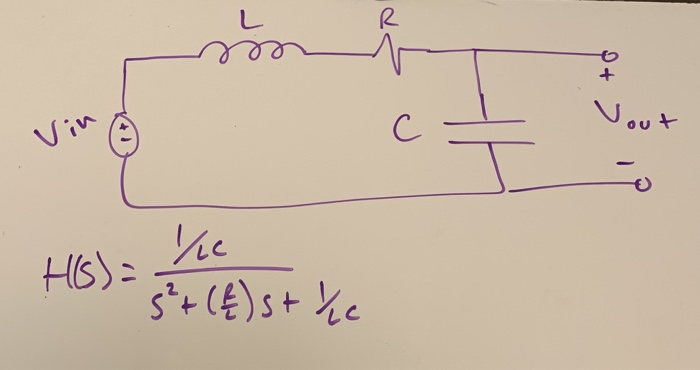 L
R
Vin
C
+
Vout
-
H(s) = (1/LC) / (s² + (R/L)s + 1/LC)